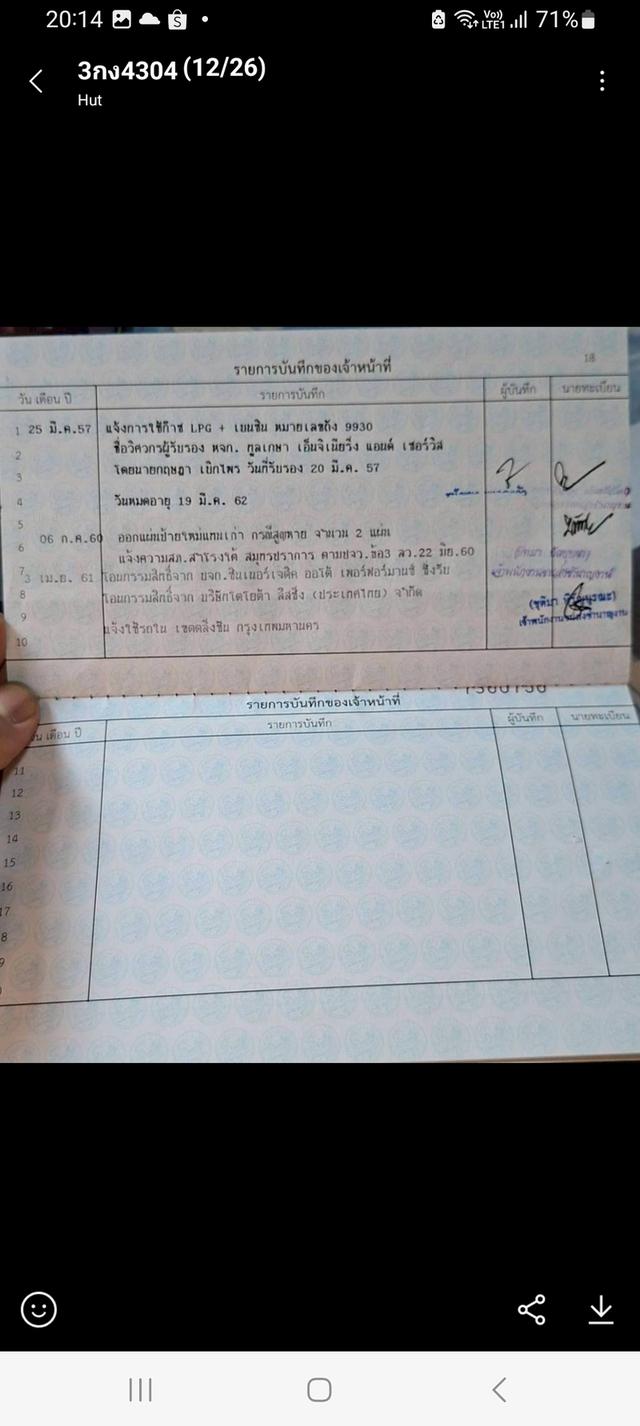 20:14
Vo)) LTE1 71%
3กง4304 (12/26)
Hut
18
รายการบันทึกของเจ้าหน้าที่
วัน เดือน ปี รายการบันทึก ผู้บันทึก นายทะเบียน
1 25 มี.ค.57 แจ้งการใช้ก๊าซ LPG + เบนซิน หมายเลขถัง 9930
2 ชื่อวิศวกรผู้รับรอง หจก. กูลเกษา เอ็นจิเนียริ่ง แอนด์ เซอร์วิส
3 โดยนายกฤษฎา เบิกไพร วันที่รับรอง 20 มี.ค. 57
4 วันหมดอายุ 19 มี.ค. 62
5
6 06 ก.ค.60 ออกแผ่นป้ายใหม่แทนเก่า กรณีสูญหาย จำนวน 2 แผ่น
แจ้งความสภ.สำโรงใต้ สมุทรปราการ ตามปจว.ข้อ3 ลว.22 มิย.60
7 3 เม.ย. 61 โอนกรรมสิทธิ์จาก บจก.ซินเนอร์เจติค ออโต้ เพอร์ฟอร์มานซ์ ซึ่งรับ
8 โอนกรรมสิทธิ์จาก บริษัทโตโยต้า ลีสซิ่ง (ประเทศไทย) จำกัด
9 แจ้งใช้รถใน เขตตลิ่งชัน กรุงเทพมหานคร
10
รายการบันทึกของเจ้าหน้าที่
วัน เดือน ปี รายการบันทึก ผู้บันทึก นายทะเบียน
11
12
13
14
15
16
17
8
9